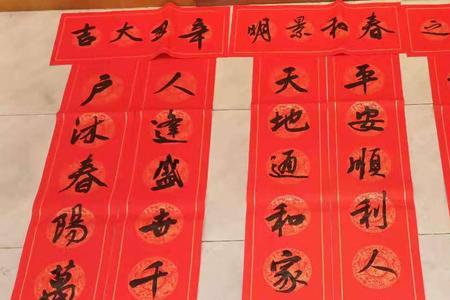 之
春和景明
平安順利人
天地通和家
辛丑大吉
人逢盛世千
户沐春陽萬